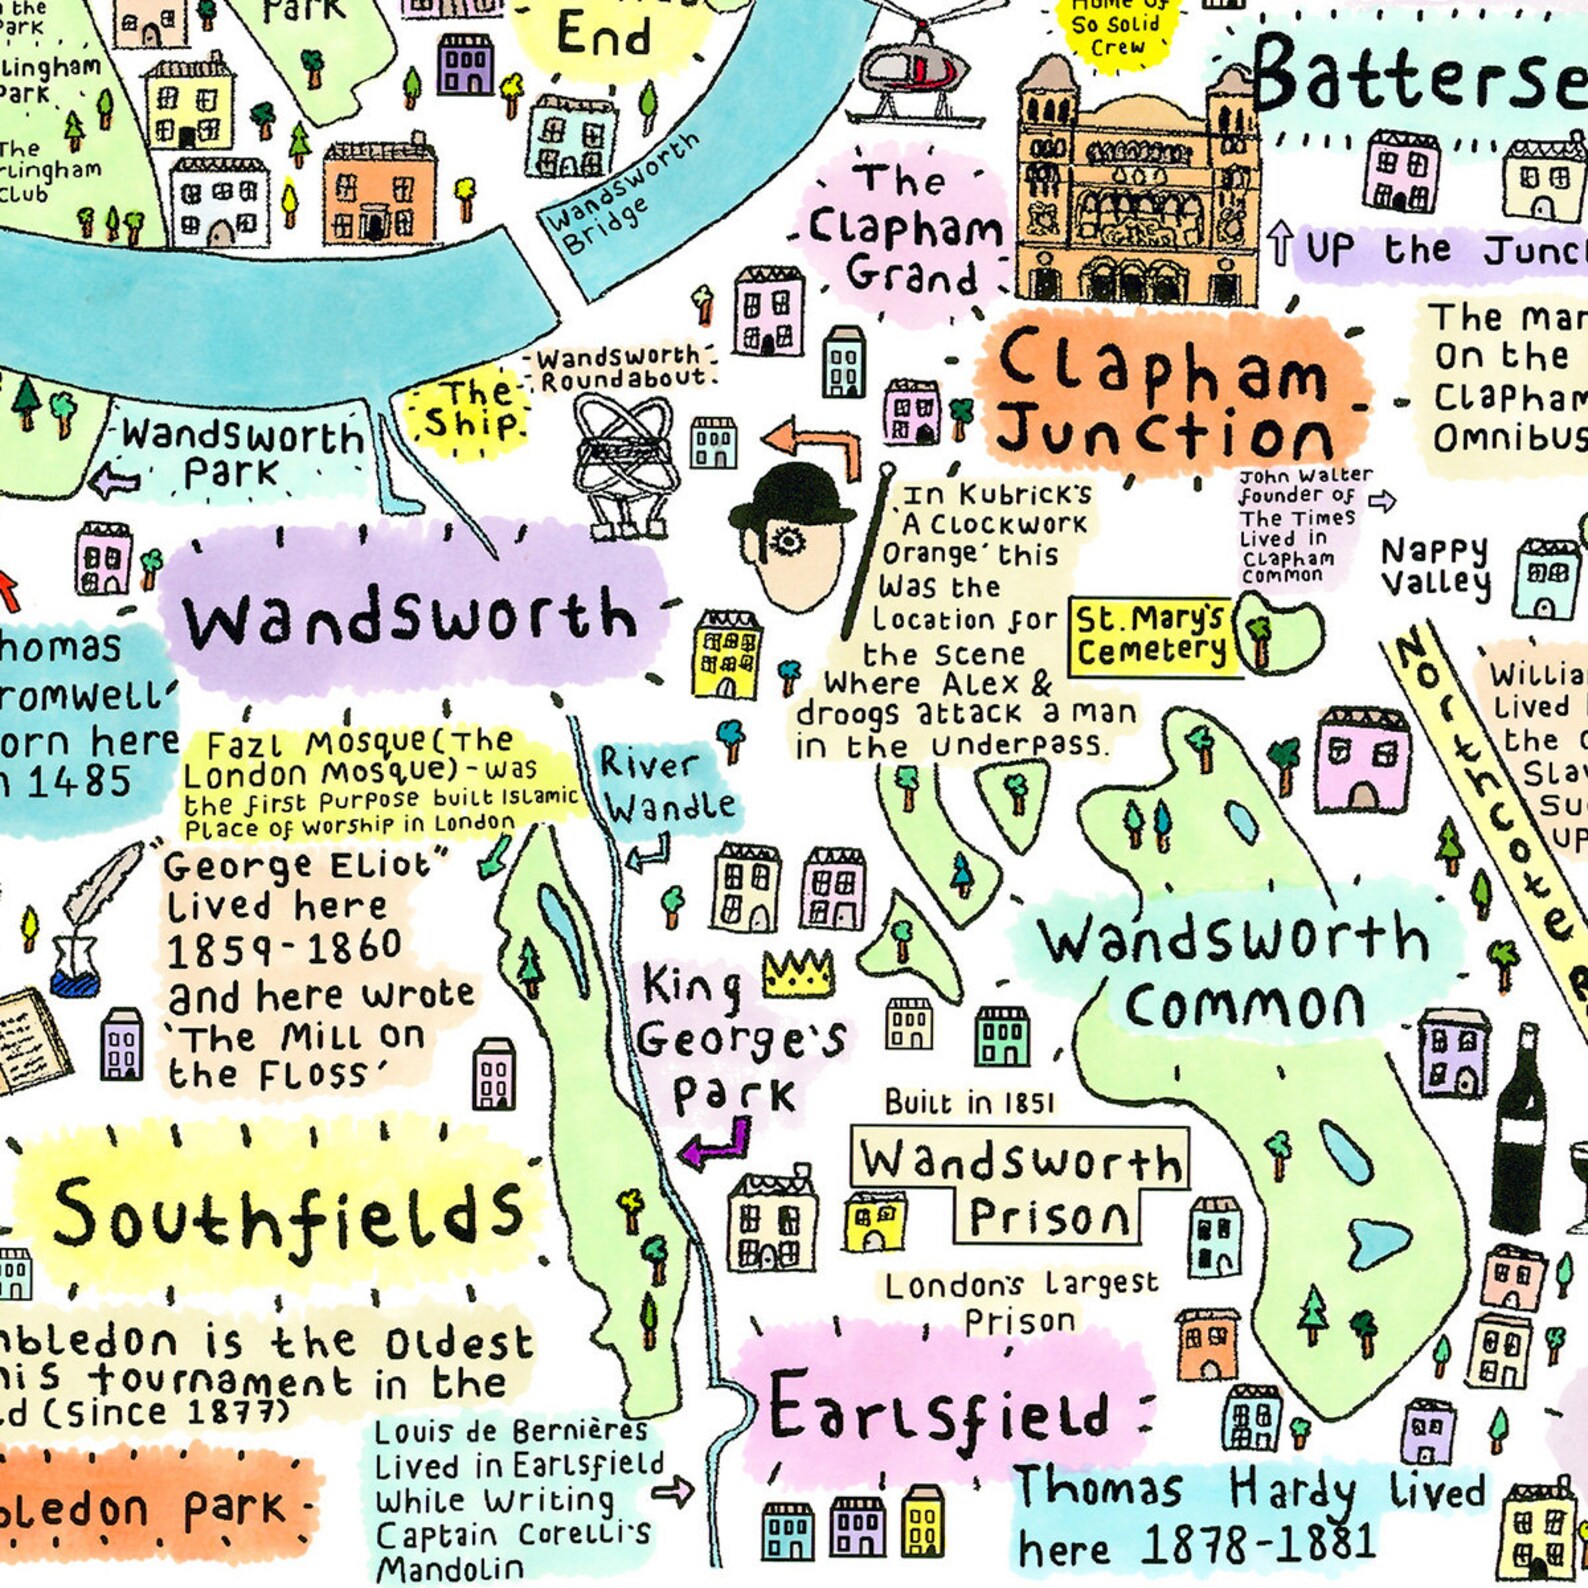 the
Park
Park
End
Home of
So Solid
Crew
Batterse
lingham
Park
The
rlingham
Club
Wandsworth
Bridge
The
Clapham
Grand
UP the Junc
The man
On the
Clapham
Omnibus
Wandsworth
Roundabout.
The
Ship.
Clapham
Junction
Wandsworth
Park
In Kubrick's
'A Clockwork
Orange' this
Was the
Location for
the scene
Where Alex &
droogs attack a man
in the underpass.
John Walter
founder of
The Times
Lived in
Clapham
Common
Nappy
Valley
St. Mary's
Cemetery
Wandsworth
homas
romwell
orn here
n 1485
Fazl Mosque (The
London Mosque) - was
the first Purpose built Islamic
Place of worship in London
River
Wandle
Northcote
Willia
Lived
the
Slav
Su
UP
"George Eliot"
Lived here
1859-1860
and here wrote
'The Mill on
the Floss'
King
George's
Park
Wandsworth
Common
Built in 1851
Wandsworth
Prison
London's Largest
Prison
Southfields
mbledon is the oldest
nis tournament in the
ld (Since 1877)
Earlsfield
bledon Park
Louis de Bernières
Lived in Earlsfield
While Writing
Captain Corelli's
Mandolin
Thomas Hardy lived
here 1878-1881